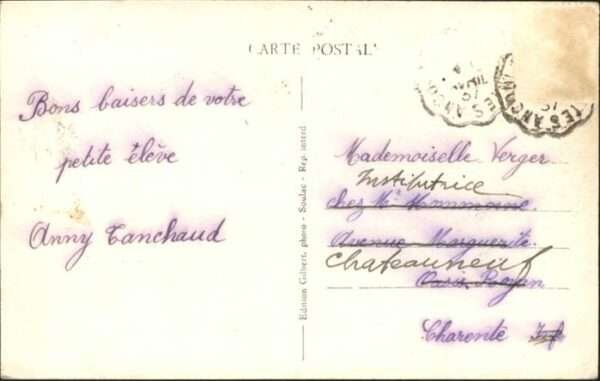 CARTE POSTAL
Bons baisers de votre
petite élève
Anny Tanchaud
Edition Gilbert, photo - Soulac - Rep. interd
Mademoiselle Verger
Institutrice
chez Mr
Avenue Marguerite
Chateauneuf
Oasis Royan
Charente Inf